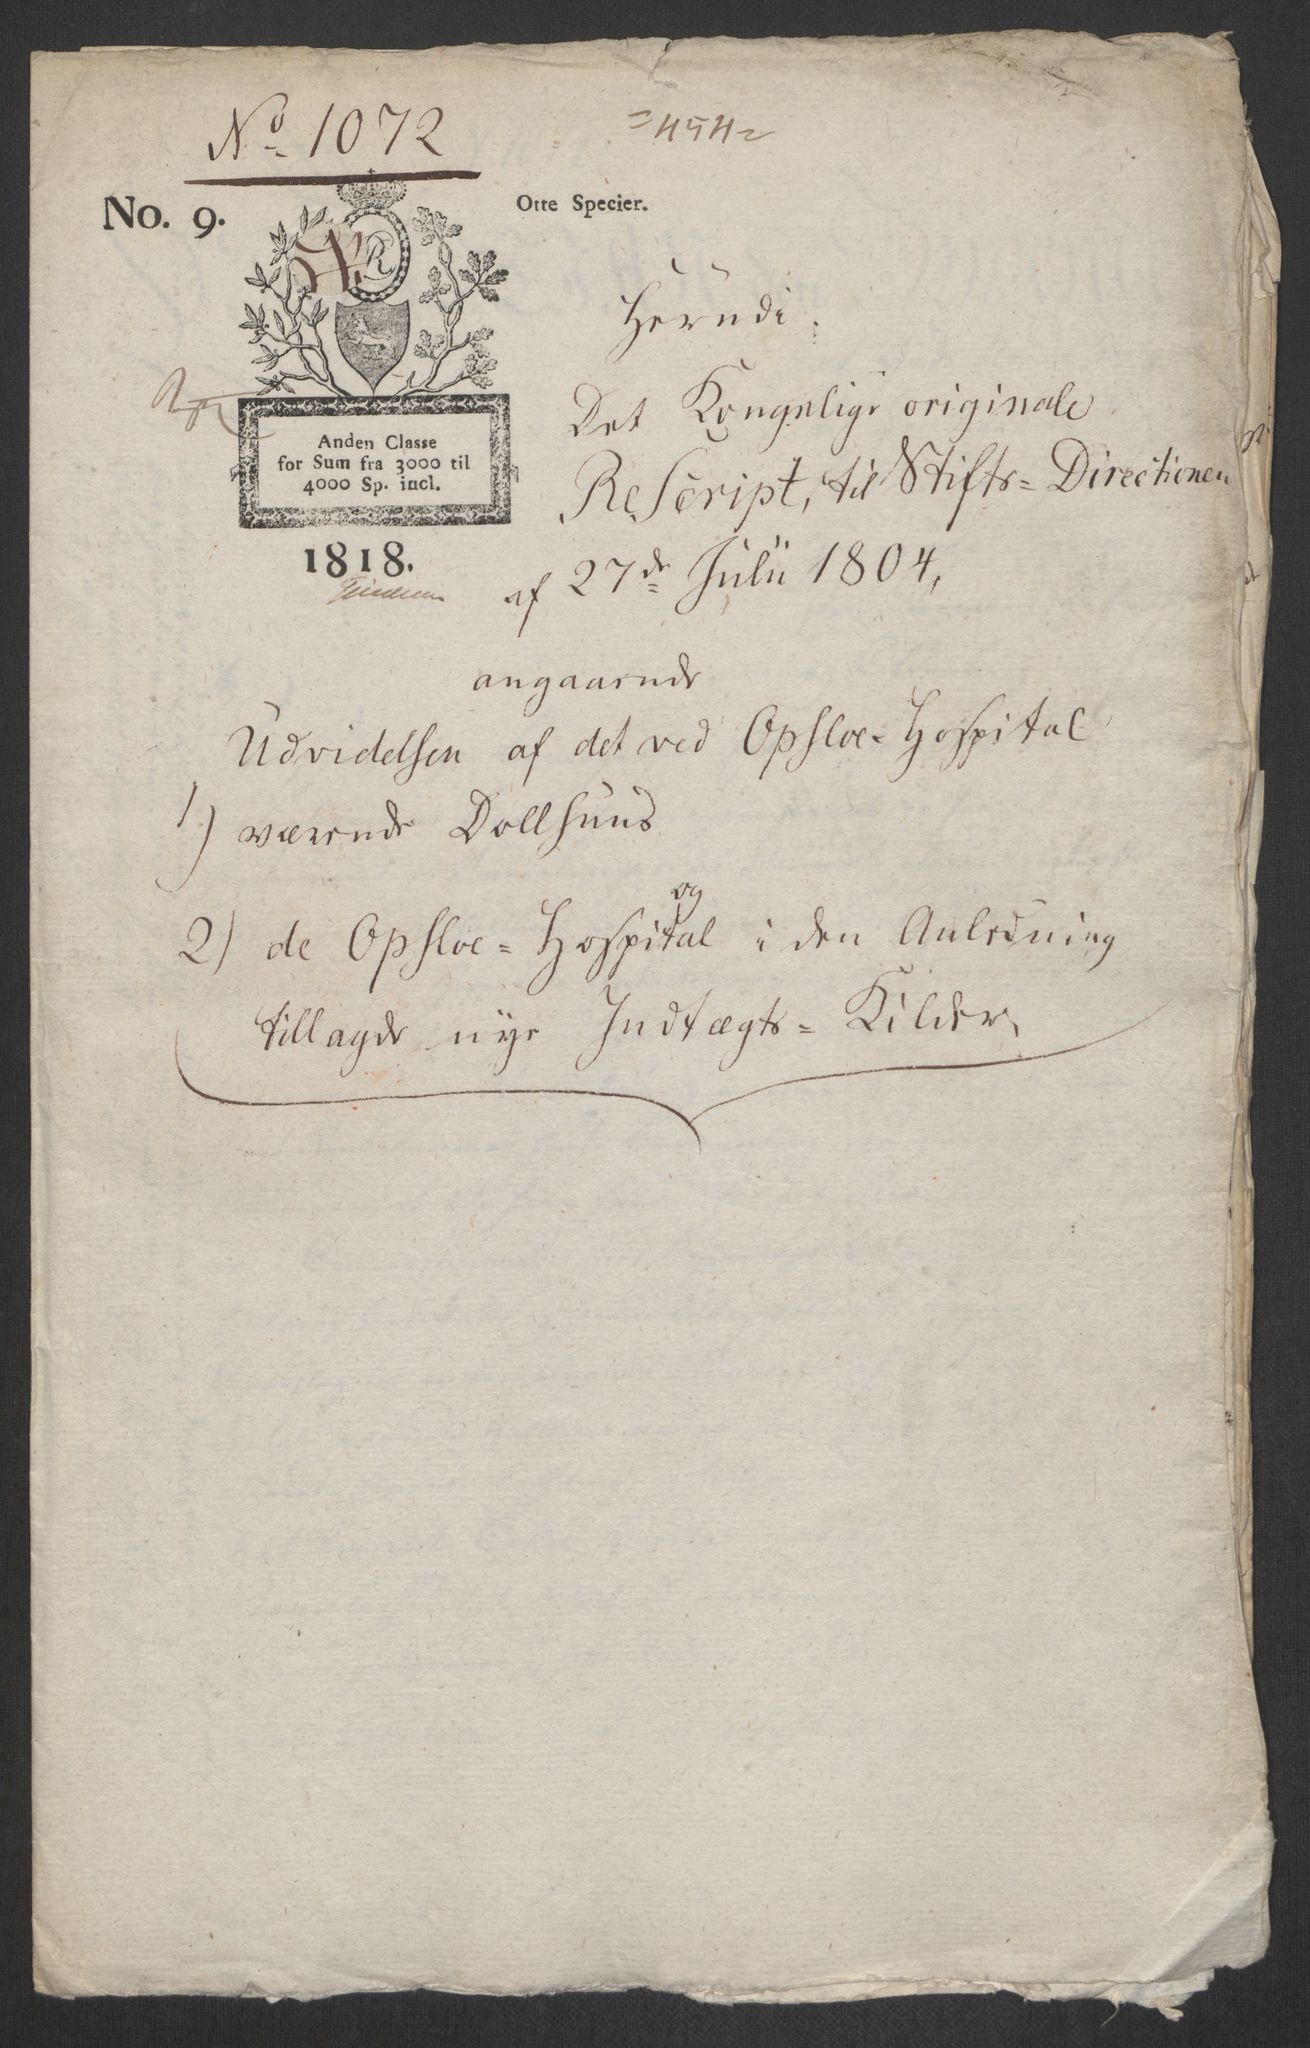 No 1072
=454=
No. 9.
Otte Specier.
R
Anden Classe
for Sum fra 3000 til
4000 Sp. incl.
1818.
Herudi.
Det Kongelige originale
ReScript, til Stifts=Directionen
af 27de Julii 1804,
angaaende
Udvidelsen af det ved Opsloe=Hospital
1) værende Dollhuus
og
2) de Opsloe=Hospital i den Anledning
tillagde nye Indtægts=Kilder,